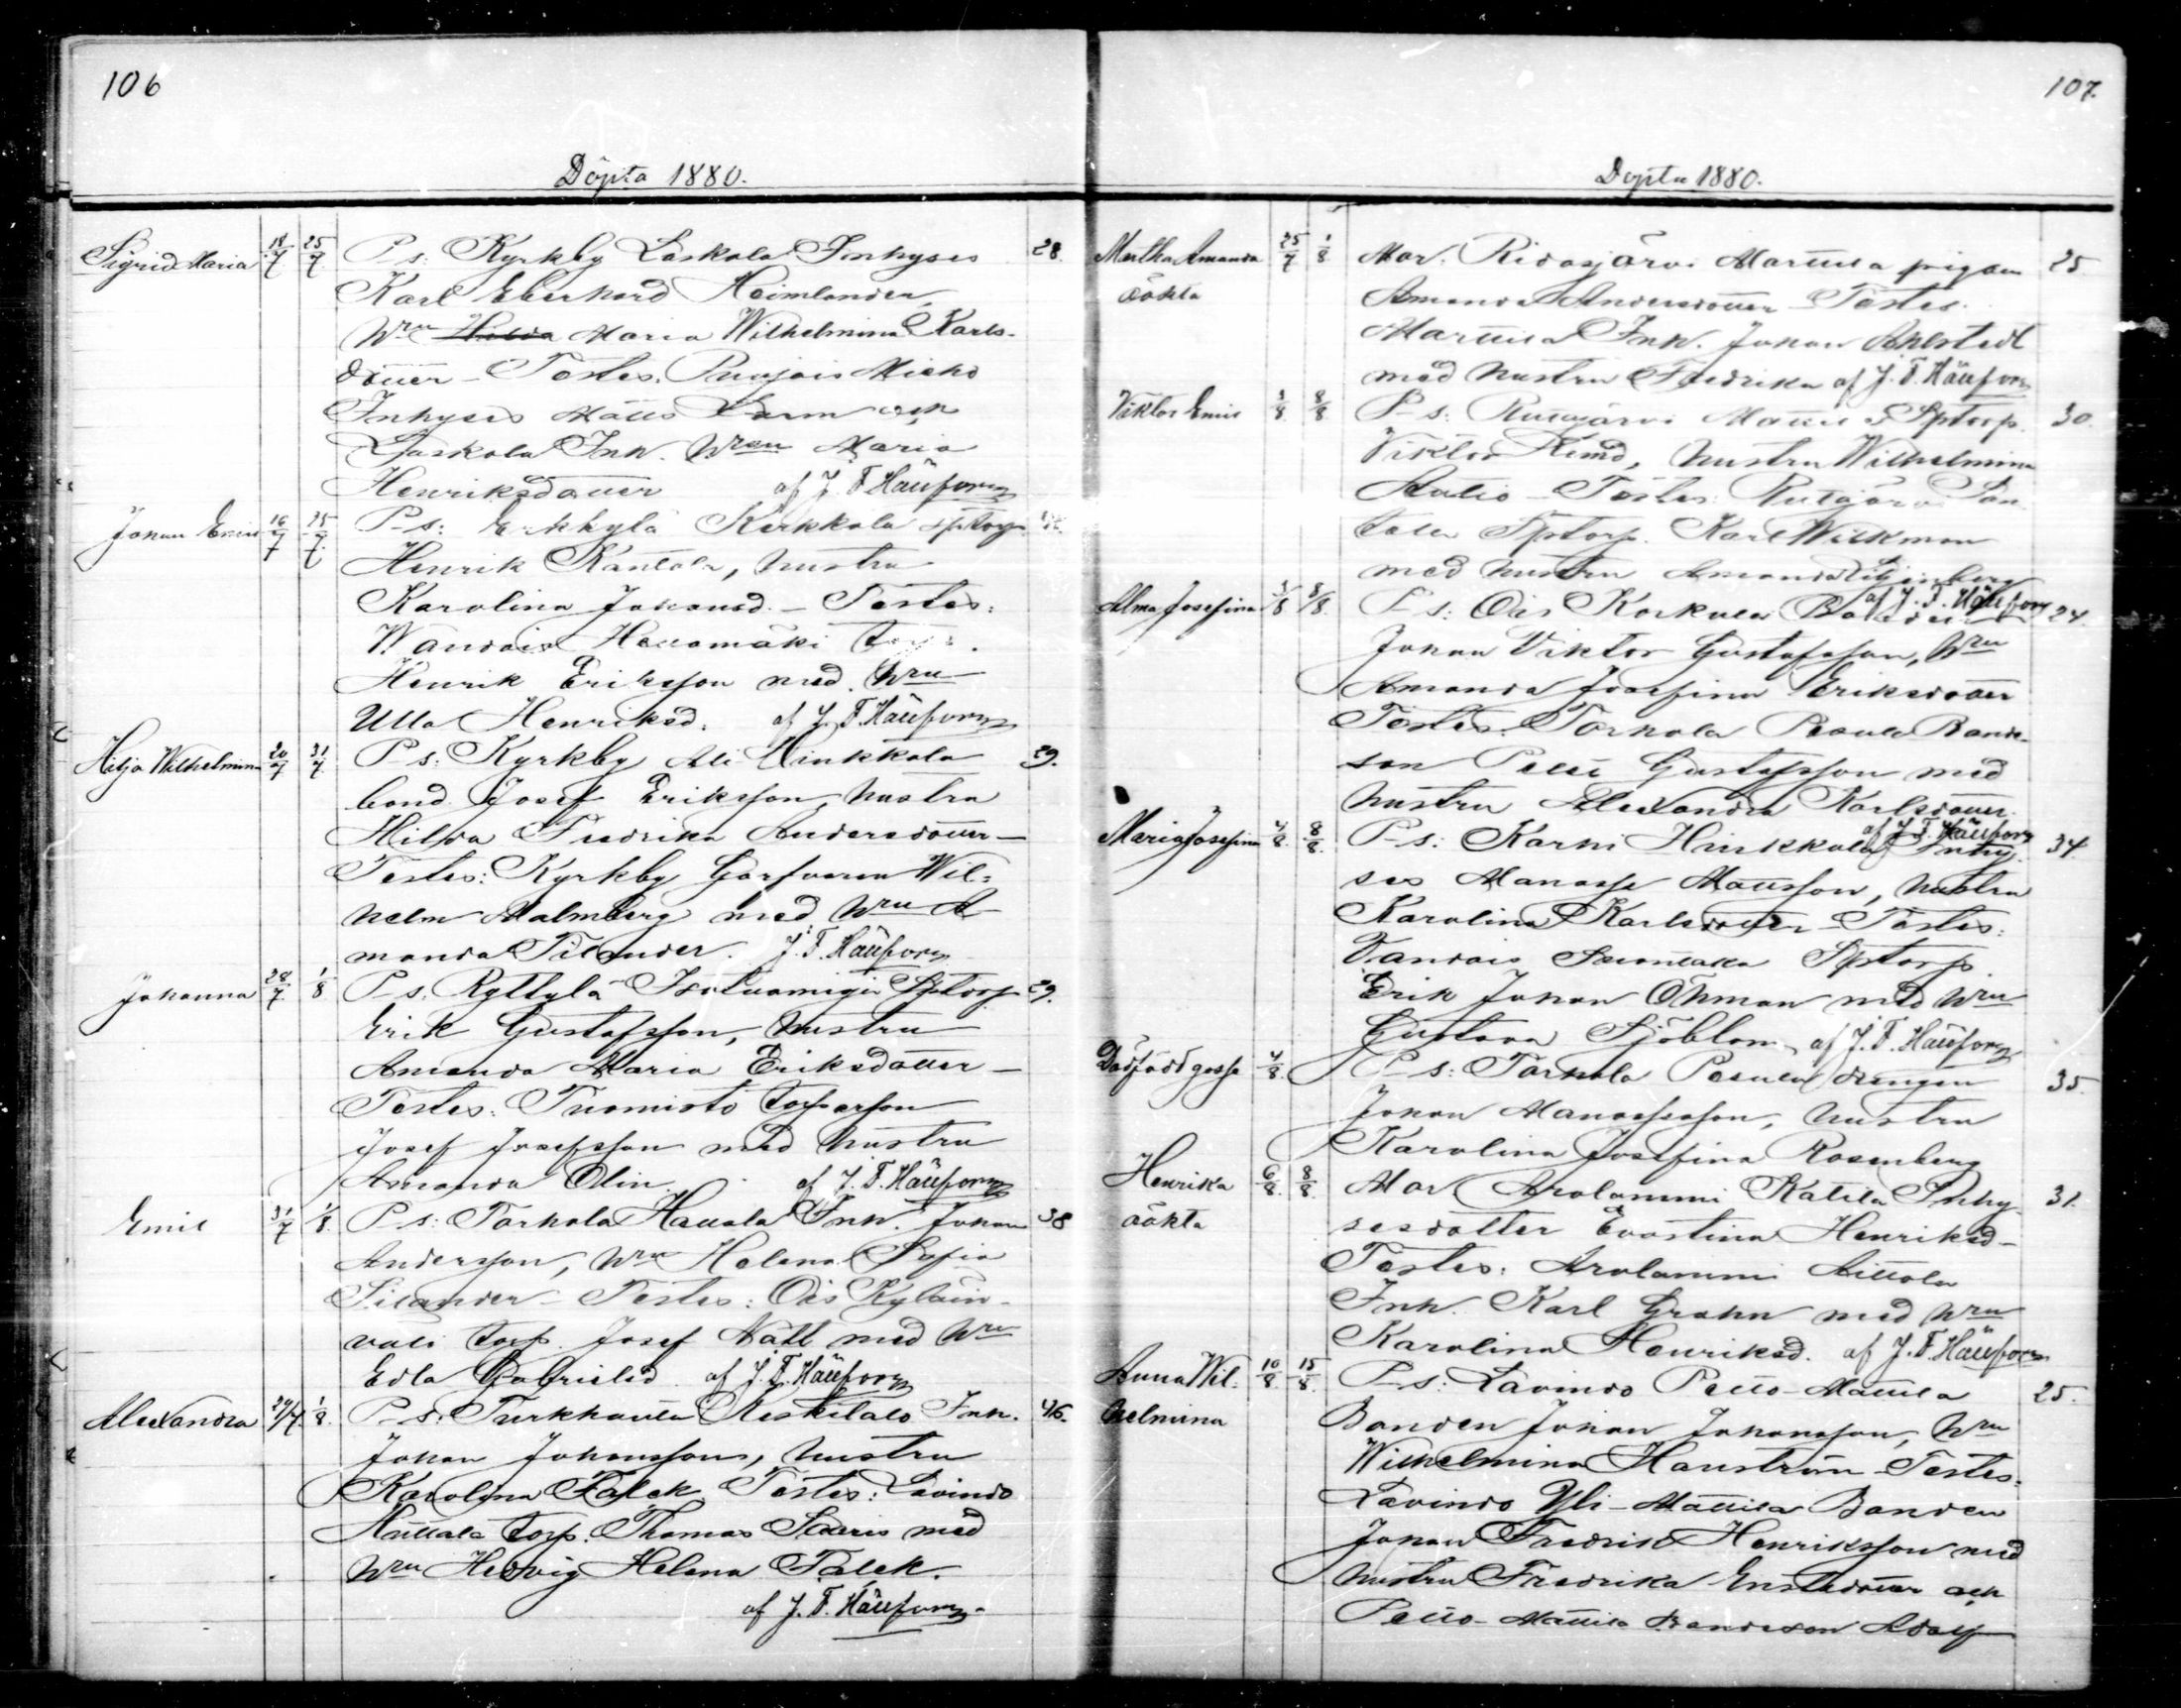 106
Döpta 1880.
Sigrid Maria 18/7 25/7 P-s: Kyrkby Laskala Inhyses 28.
Karl Eberhard Heimlander,
Hru Hilda Maria Wilhelmina Karls-
dotter – Testes. Puujois Micko
Inhyses Matts Larm och
Laskala Inh. Hrun Maria
Henriksdotter af J. F. Hällfors
Johan Emil 16/7 25/7 P-s: Erkkylä Kerkkola sptorp.
Henrik Kantola, hustru
Karolina Johansd. – Testes:
Wandois Hettamäki
Henrik Eriksson med Hru
Ulla Henriksd. af J. F. Hällfors
Hilja Wilhelmina 20/7 31/7 P-s: Kyrkby Ali Hinkkala 29.
bond. Josef Eriksson, hustru
Hilda Fredrika Andersdotter –
Testes: Kyrkby Garfvaren Wil-
helm Malmberg med Hru A-
manda Tilander. J. F. Hällfors
Johanna 28/7 1/8 P-s. Ryttylä Isotuomigu Sptorp 29.
Erik Gustafsson, hustru
Amanda Maria Eriksdotter –
Testes: Tuomisto torparson
Josef Josefsson med hustru
Amanda Olin. af J. F. Hällfors
Emil 31/7 1/8 P-s: Torhola Hausla Inh. Johan 38
Andersson, Hru Helena Sofia
Silander – Testes: Ois Kylän-
väli torp. Josef Nätt med Hru
Edla Gabrielsd. af J. F. Hällfors
Alexandra 29/7. 1/8 P-s: Turkhauta Keskitalo Inh. 46.
Johan Johansson, hustru
Karolina Falck Testes: Lavindo
Hüttala torp. Thomas Saxeris med
Hru Hedvig Helena Falck.
af J. F. Hällfors
107.
Döpta 1880.
Martha Amanda 25/7 1/8 Mar. Ridasjärvi Marttila pigan 25
oäkta Amanda Andersdotter – Testes.
Marttila Inh. Johan Ahlstedt
med hustru Fredrika af J. F. Hällfors
Viktor Emil 3/8 8/8 P-s: Rutajärvi Mattila Sptorp. 30.
Viktor Lund, hustru Wilhelmina
Aulio – Testes: Rutajärvi San-
tala Sptorp. Karl Wickman
med hustru Amanda Liljenberg
af J. F. Hällfors
Alma Josefina 3/8 8/8. P-s: Ois Korkula Bonden 24.
Johan Viktor Gustafsson, Hru
Amanda Josefina Eriksdotter
Testes. Torhola Pesula Bonde-
son Pelli Gustafsson med
hustru Alexandra Karlsdotter.
af J. F. Hällfors
Maria Josefina 4/8. 8/8. P-s: Karhi Hinkkala Inhy- 34.
ses Manasse Mattsson, hustru
Karolina Karlsdotter – Testes:
Vandois Sptorp.
Erik Johan Öhman med Hru
Gustava Sjöblom af J. F. Hällfors
Dödfödd gosse 4/8. P-s: Torhola Pesula drengen 35.
Johan Manassesson, hustru
Karolina Josefina Rosenberg
Henrika 6/8. 8/8. Mar. Arolammi Katila Inhy- 31.
oäkta sesdotter Evastina Henriksd–
Testes: Arolammi Aittola
Inh. Karl Grahn med Hru
Karolina Henriksd. af J. F. Hällfors
Anna Wil- 10/8. 15/8. P-s: Lavindo Pello-Mattila 25.
helmina Bonden Johan Johansson, Hru
Wilhelmina Hanström – Testes.
Lavindo Yli-Mattila Bonden
Johan Fredrik Henriksson med
hustru Fredrika Enstedotter och
Pello-Mattila Bondeson Adolf